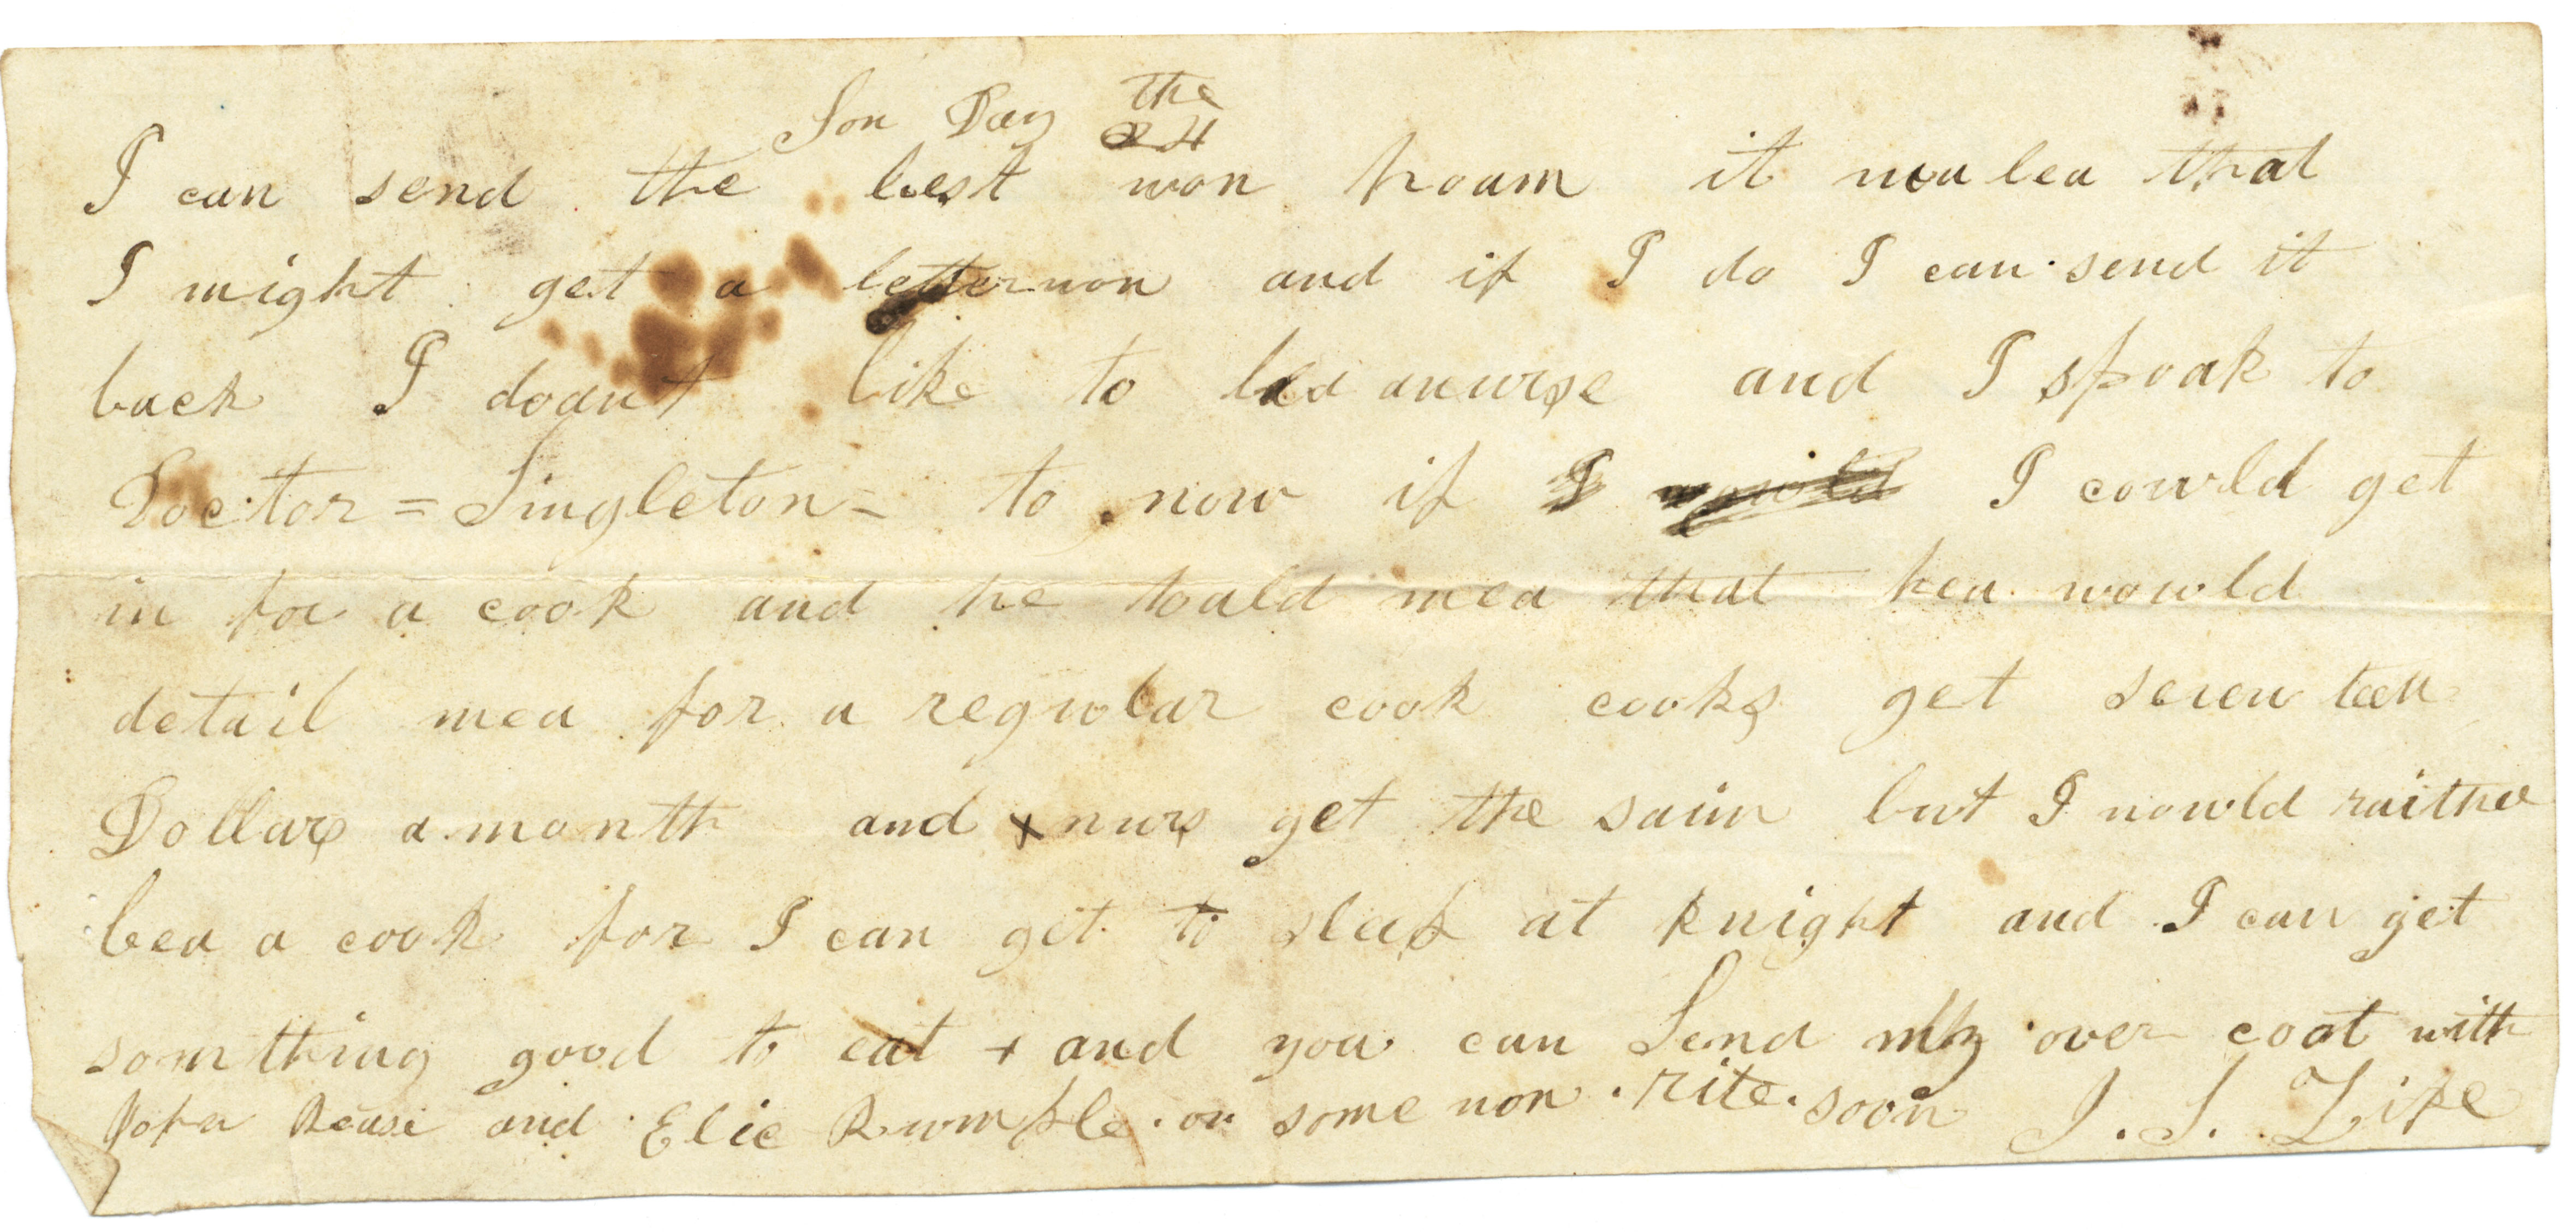 Son Day the 24
I can send the best won hoam it ma bea that
I might get a letter non and if I do I can send it
back I doant like to bea a nurse and I spoak to
Doctor = Singleton = to now if I I cowld get
in for a cook and he toald mea that hea wowld
detail mea for a regular cook cooks get seven teen
Dollars a month and + nurs get the saim but I wowld raither
bea a cook for I can get to sleep at knight and I can get
som thing good to eat + and you can Send my over coat with
John Rease and Elie Rumple or some non rite soon J. S. Lipe